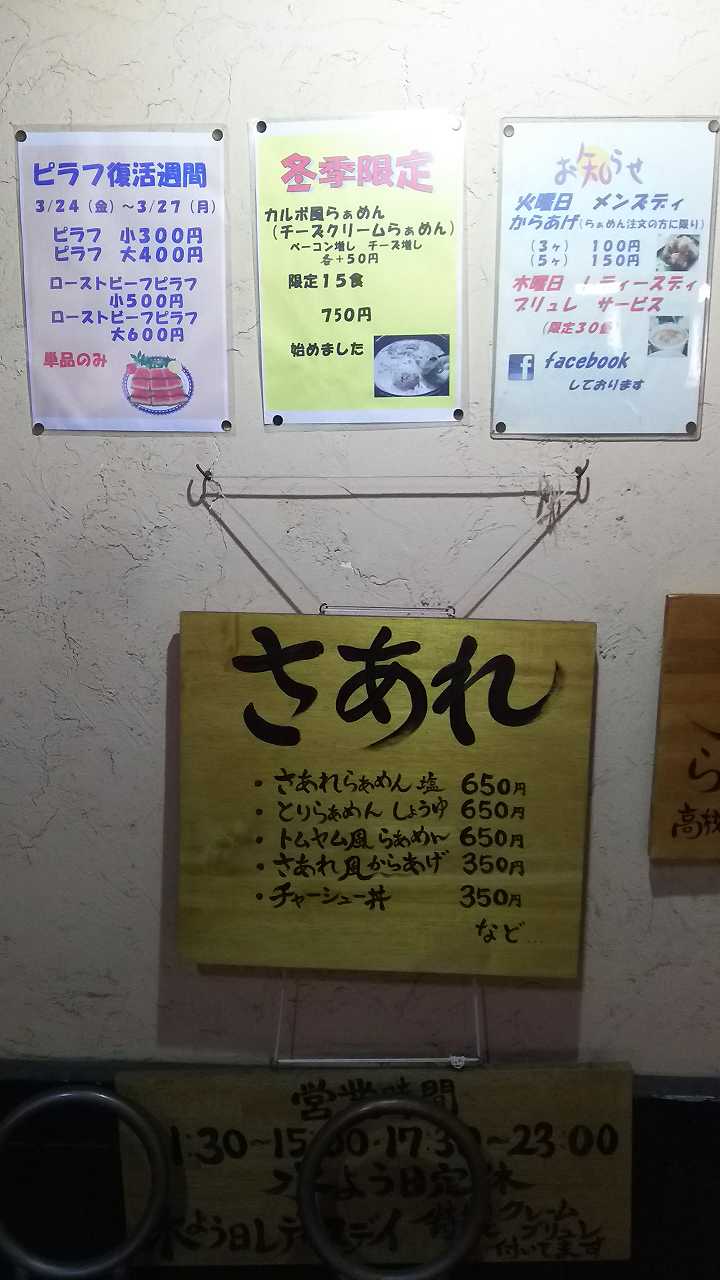 ピラフ復活週間
3/24(金)~3/27(月)
ピラフ 小300円
ピラフ 大400円
ローストビーフピラフ
小500円
ローストビーフピラフ
大600円
単品のみ
冬季限定
カルボ風らぁめん
(チーズクリームらぁめん)
ベーコン増し チーズ増し
各+50円
限定15食
750円
始めました
お知らせ
火曜日 メンズディ
からあげ(らぁめん注文の方に限り)
(3ヶ) 100円
(5ヶ) 150円
木曜日 レディースディ
ブリュレ サービス
(限定30個)
facebook
しております
さあれ
・さあれらぁめん 塩 650円
・とりらぁめん しょうゆ 650円
・トムヤム風 らぁめん 650円
・さあれ風からあげ 350円
・チャーシュー丼 350円
など...
ら
高
営業時間
1:30~15:00・17:30~23:00
水よう日定休
木よう日レディスデイ
クレーム
ブリュレ
付いてます